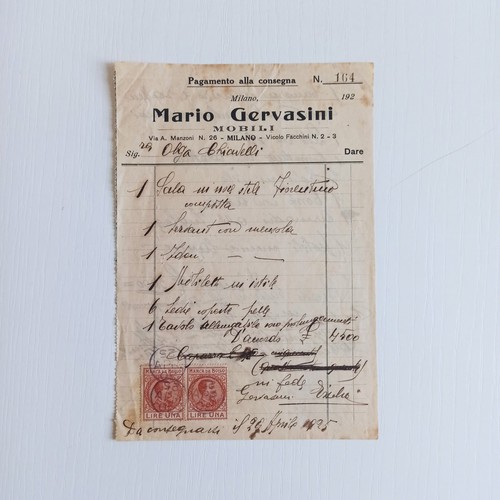 Pagamento alla consegna N. 164
Milano, 192
Mario Gervasini
MOBILI
Via A. Manzoni N. 26 - MILANO - Vicolo Facchini N. 2 - 3
Sig.ra Olga Chiavelli Dare
1 Sala in noce stile Fiorentino
completa
1
1 Idem — —
1 in stile
6 Sedie coperte pelle
1 Tavolo allungabile con prolungamenti
D'accordo 4500
MARCA DA BOLLO MARCA DA BOLLO
LIRE UNA LIRE UNA
in fede
Gervasini
Da consegnarsi il 29 Aprile 1925